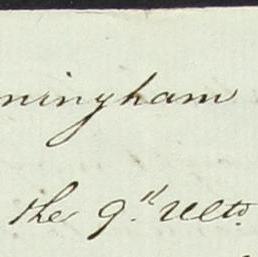 mingham
the 9th Ulto.